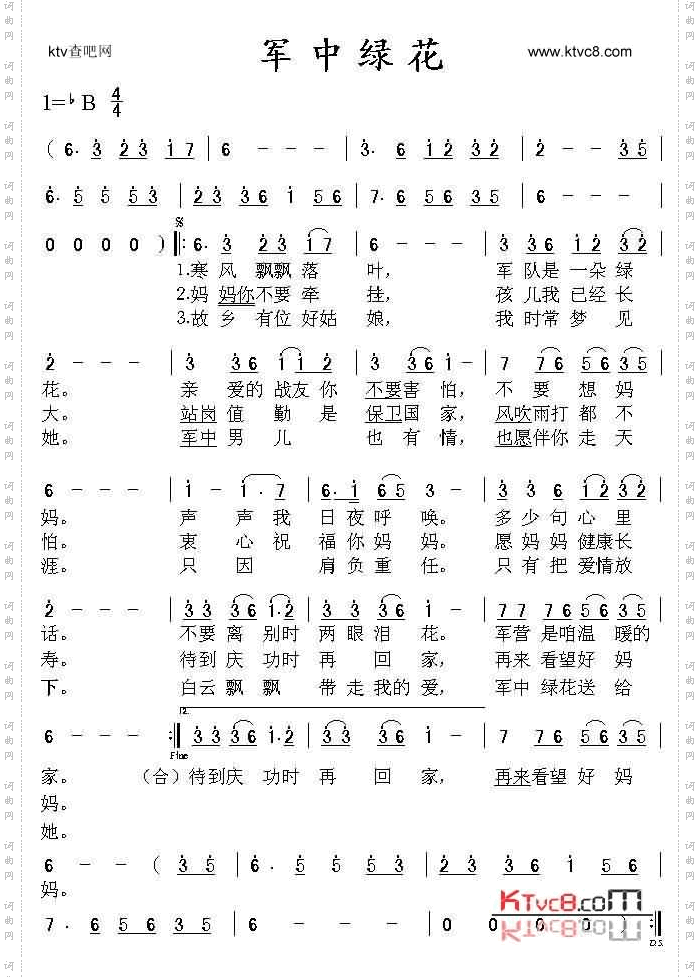 ktv查吧网
军中绿花
www.ktvc8.com
1=♭B 4/4
( 6· 3 2 3 1 7 | 6 - - - | 3· 6 1 2 3 2 | 2 - - 3 5 |
6· 5 5 5 3 | 2 3 3 6 1 5 6 | 7· 6 5 6 3 5 | 6 - - - |
0 0 0 0 ) ‖: 6· 3 2 3 1 7 | 6 - - - | 3 3 6 1 2 3 2 |
1.寒风飘飘落叶， 军队是一朵绿
2.妈妈你不要牵挂， 孩儿我已经长
3.故乡有位好姑娘， 我时常梦见
2 - - - | 3 3 6 1 1 2 | 3 3 6 1 - | 7 7 6 5 6 3 5 |
花。 亲爱的战友你不要害怕， 不要想妈
大。 站岗值勤是保卫国家， 风吹雨打都不
她。 军中男儿也有情， 也愿伴你走天
6 - - - | 1 - 1· 7 | 6· 1 6 5 3 - | 3 3 6 1 2 3 2 |
妈。 声声我日夜呼唤。 多少句心里
怕。 衷心祝福你妈妈。 愿妈妈健康长
涯。 只因肩负重任。 只有把爱情放
2 - - - | 3 3 3 6 1· 2 | 3 3 3 6 1 - | 7 7 7 6 5 6 3 5 |
话。 不要离别时两眼泪花。 军营是咱温暖的
寿。 待到庆功时再回家， 再来看望好妈
下。 白云飘飘带走我的爱， 军中绿花送给
2.
6 - - - :‖ 3 3 3 6 1· 2 | 3 3 3 6 1 - | 7 7 6 5 6 3 5 |
Fine
家。 （合）待到庆功时再回家， 再来看望好妈
妈。
她。
6 - - ( 3 5 | 6· 5 5 5 3 | 2 3 3 6 1 5 6 |
妈。
7· 6 5 6 3 5 | 6 - - - | 0 0 0 0 ) :‖
D.S.
KTvc8.com
词曲网